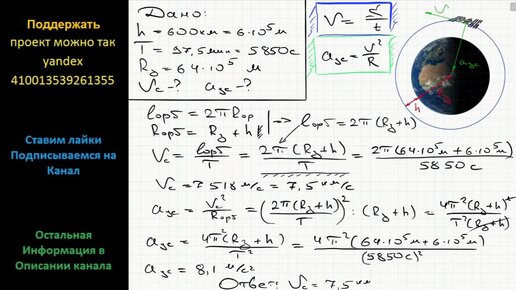 Поддержать
проект можно так
yandex
410013539261355
Ставим лайки
Подписываемся на
Канал
Остальная
Информация в
Описании канала
Дано:
h = 600км = 6·10⁵ м
T = 97,5мин = 5850с
Rз = 64·10⁵ м
Vc - ? aцс - ?
V = S/t
aцс = V²/R
V
aцс
h
lорб = 2πRор
Rорб = Rз + h | => lорб = 2π(Rз+h)
Vc = lорб/T = 2π(Rз+h)/T = 2π(64·10⁵м+6·10⁵м)/5850с
Vc = 7518 м/с = 7,5 км/с
aцс = Vc²/Rорб = (2π(Rз+h)/T)² : (Rз+h) = 4π²(Rз+h)²/T²(Rз+h)
aцс = 4π²(Rз+h)/T² = 4π²(64·10⁵м+6·10⁵м)/(5850с)²
aцс = 8,1 м/с²
Ответ: Vc = 7,5 км